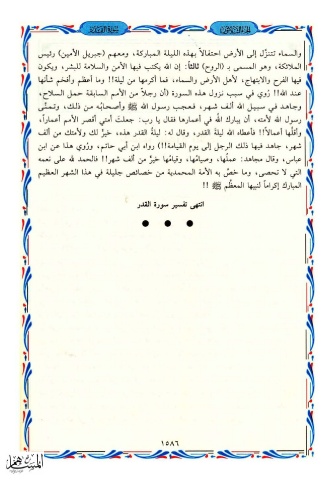 سورة القدر
والسماء تتنزَّل إلى الأرض احتفالاً بهذه الليلة المباركة، ومعهم (جبريل الأمين) رئيس
الملائكة، وهو المسمى بـ (الروح) ثالثاً: إن الله يكتب فيها الأمن والسلامة للبشر، ويكون
فيها الفرح والابتهاج، لأهل الأرض والسماء، فما أكرمها من ليلة!! وما أعظم وأفخم شأنها
عند الله!! رُوي في سبب نزول هذه السورة (أن رجلاً من الأمم السابقة حمل السلاح،
وجاهد في سبيل الله ألف شهر، فعجب رسول الله ﷺ وأصحابُه من ذلك، وتمنَّى
رسول الله لأمته، أن يبارك الله في أعمارها فقال يا رب: جعلتَ أمتي أقصر الأمم أعماراً،
وأقلَّها أعمالاً!! فأعطاه الله ليلة القدر، وقال له: ليلةُ القدر هذه، خيرٌ لك ولأمتك من ألف
شهر، جاهد فيها ذلك الرجل إلى يوم القيامة!!) رواه ابن أبي حاتم، ورُوي هذا عن ابن
عباس، وقال مجاهد: عملُها، وصيامُها، وقيامُها خيرٌ من ألف شهر!! فالحمد لله على نعمه
التي لا تحصى، وما خصَّ به الأمة المحمدية من خصائص جليلة في هذا الشهر العظيم
المبارك إكراماً لنبيها المعظَّم ﷺ !!
انتهى تفسير سورة القدر
١٥٨٦